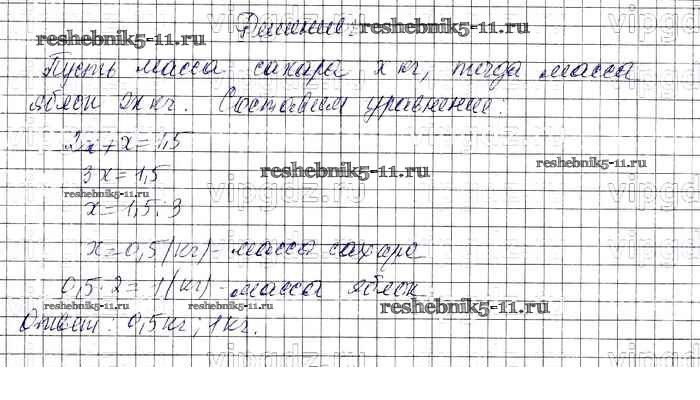 Решение:
reshebnik5-11.ru
reshebnik5-11.ru
Пусть масса сахара x кг, тогда масса
яблок 2x кг. Составим уравнение.
2x+x=1,5
reshebnik5-11.ru
3x=1,5
reshebnik5-11.ru
reshebnik5-11.ru
vipgdz.ru
x=1,5:3
x=0,5(кг)- масса сахара
0,5·2=1(кг)- масса яблок
reshebnik5-11.ru
reshebnik5-11.ru
reshebnik5-11.ru
Ответ: 0,5кг, 1кг.
vipgdz.ru